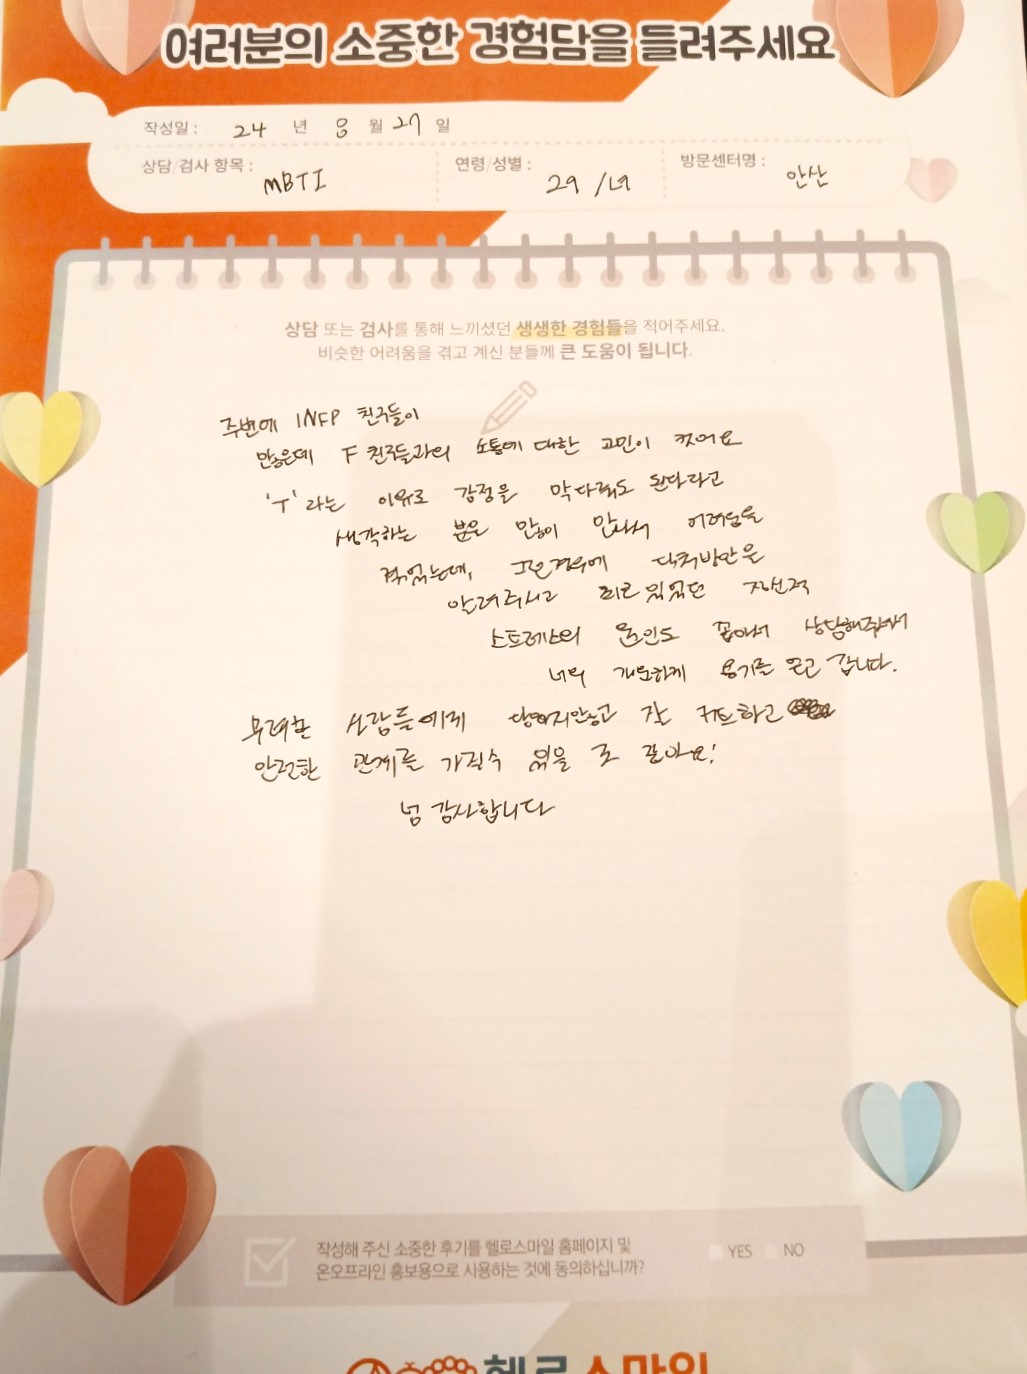 여러분의 소중한 경험담을 들려주세요
작성일 : 24 년 8 월 27 일
상담/검사 항목 : MBTI 연령/성별 : 29 /녀 방문센터명 : 안산
상담 또는 검사를 통해 느끼셨던 생생한 경험들을 적어주세요.
비슷한 어려움을 겪고 계신 분들께 큰 도움이 됩니다.
주변에 INFP 친구들이
많은데 F 친구들과의 소통에 대한 고민이 컸어요
'T' 라는 이유로 감정을 막다뤄도 된다라고
생각하는 분은 많이 만나서 어려움을
겪었는데, 그런경우에 대처방안을
알려주시고 최근 있었던 자신적
스트레스의 원인도 꼽아서 상담해주셔서
너무 개운하게 용기를 얻고 갑니다.
무례한 사람들에게 당하지않고 잘 커트하고
안전한 관계를 가질수 있을 것 같아요!
넘 감사합니다
작성해 주신 소중한 후기를 헬로스마일 홈페이지 및
온오프라인 홍보용으로 사용하는 것에 동의하십니까? YES NO
헬로스마일